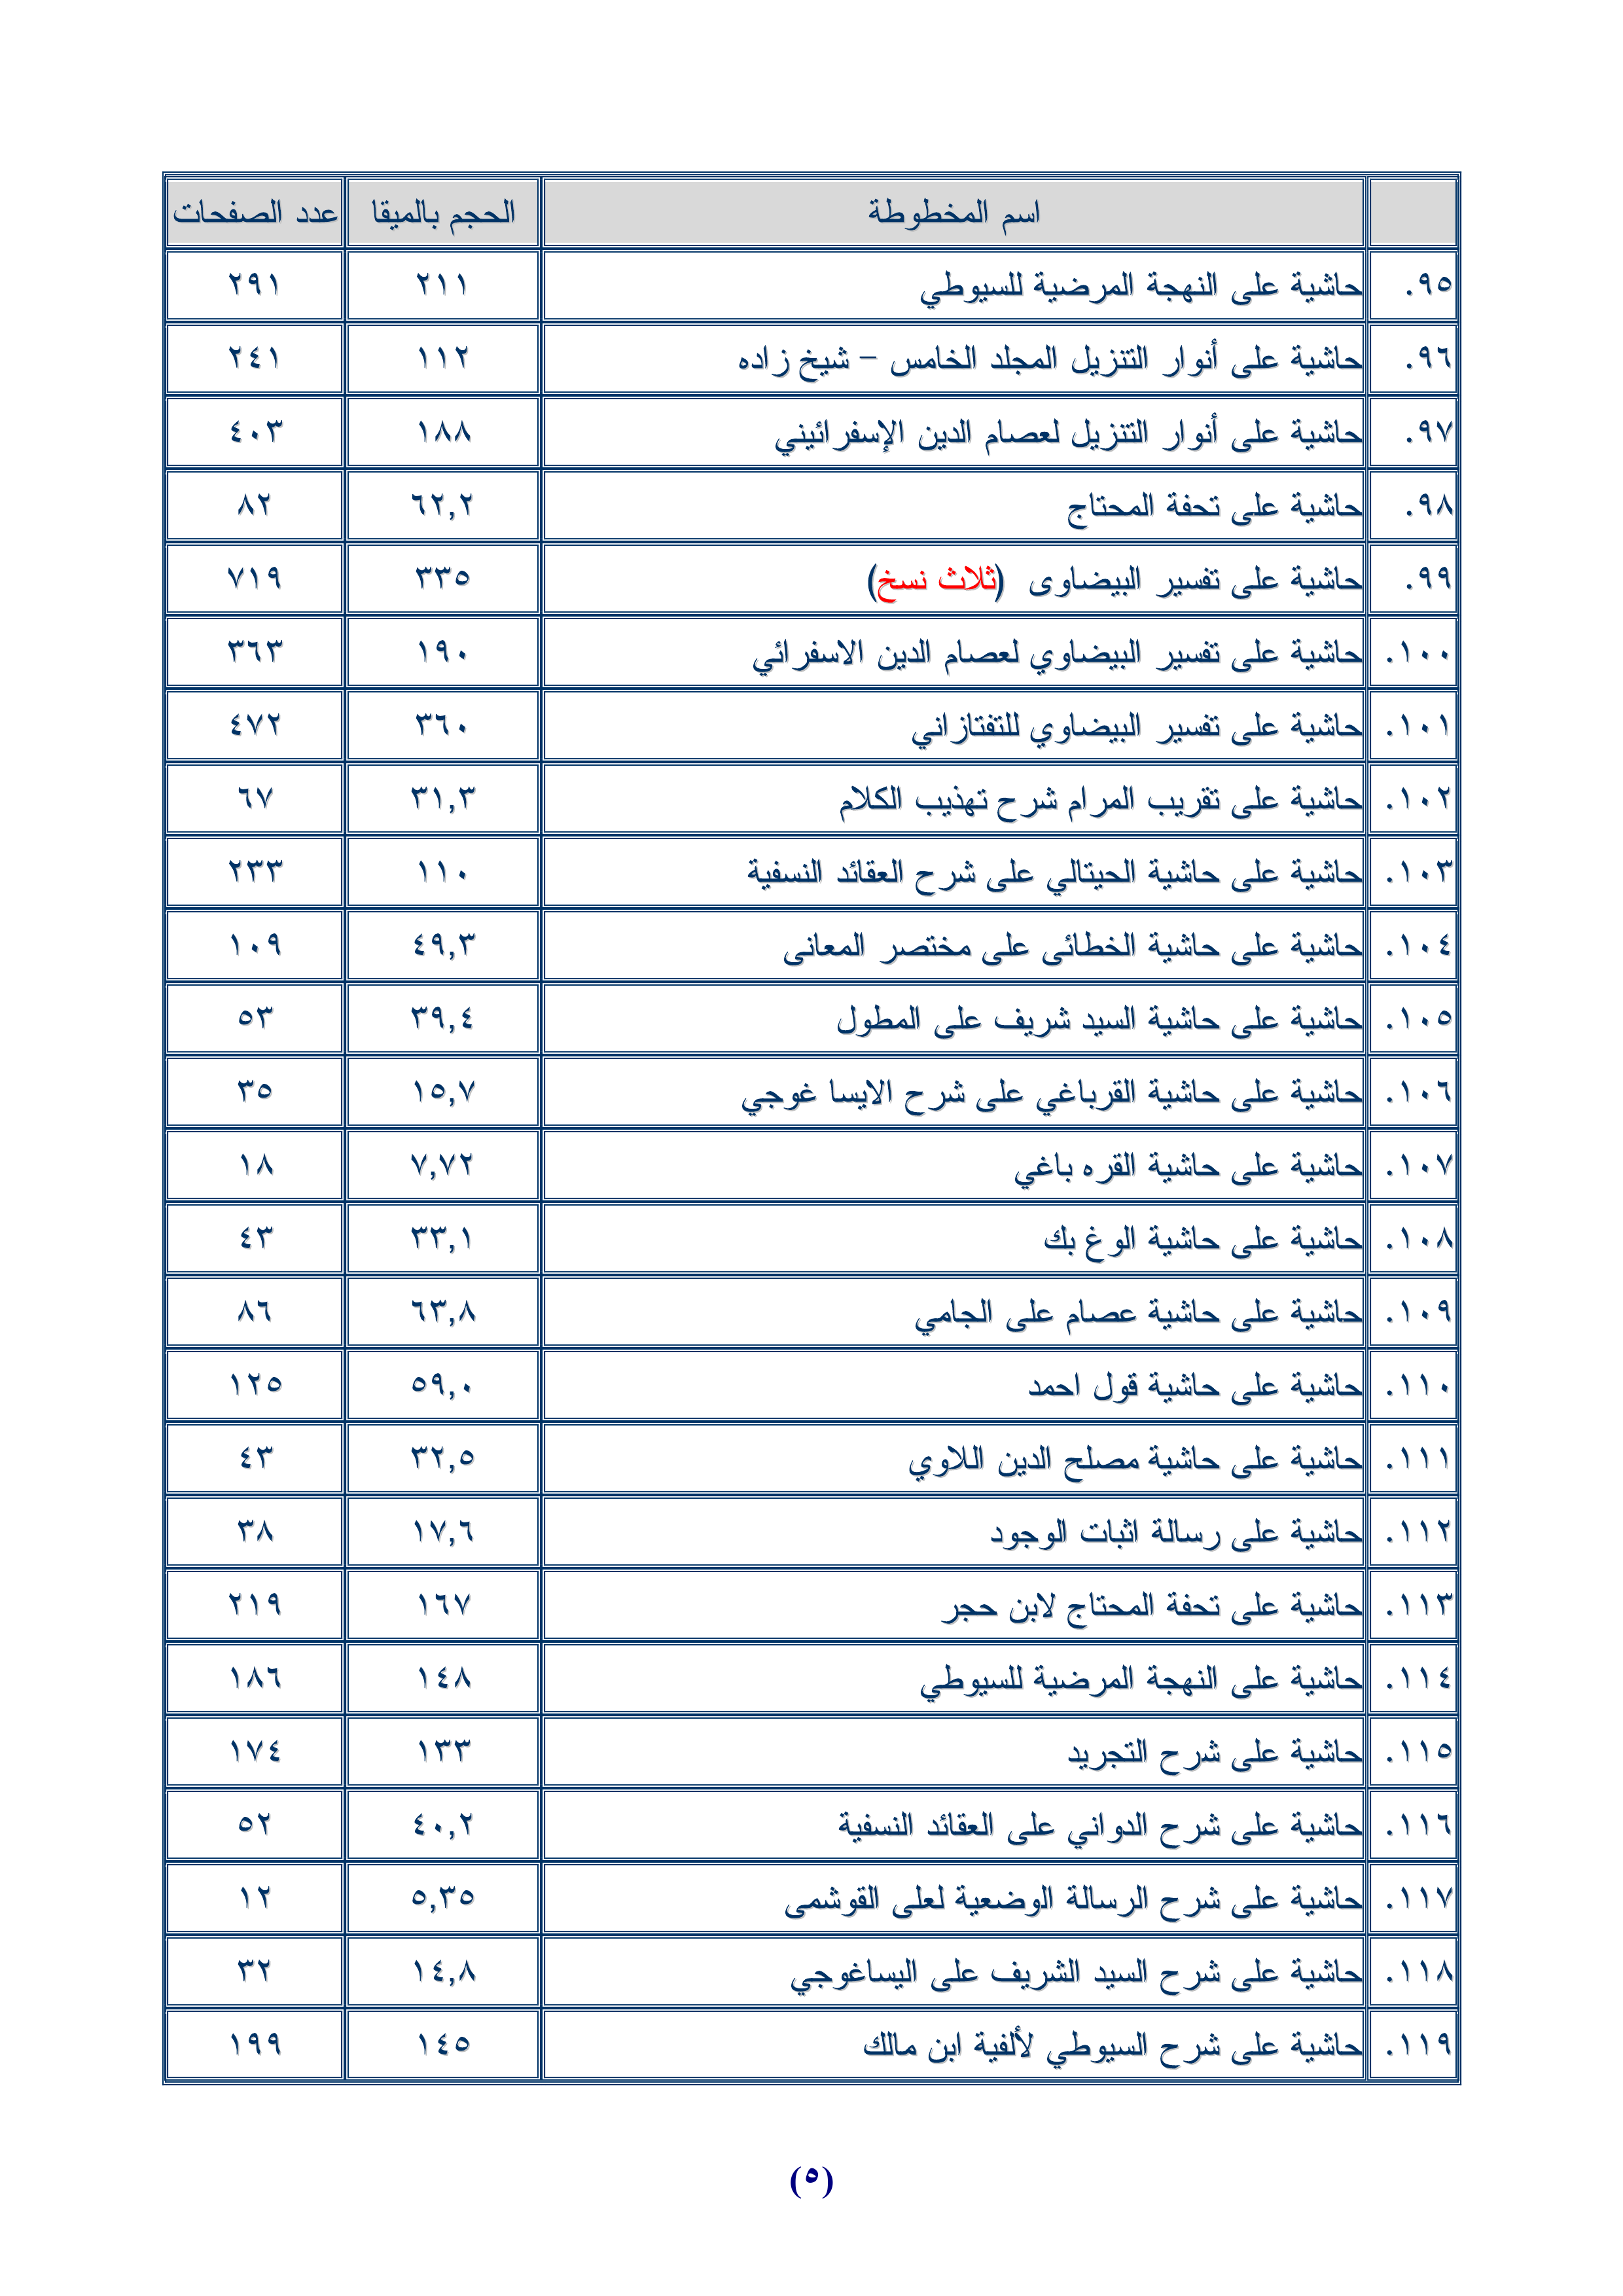 اسم المخطوطة الحجم بالميقا عدد الصفحات
٩٥. حاشية على النهجة المرضية للسيوطي ٢١١ ٢٩١
٩٦. حاشية على أنوار التنزيل المجلد الخامس – شيخ زاده ١١٢ ٢٤١
٩٧. حاشية على أنوار التنزيل لعصام الدين الإسفرائيني ١٨٨ ٤٠٣
٩٨. حاشية على تحفة المحتاج ٦٢,٢ ٨٢
٩٩. حاشية على تفسير البيضاوى (ثلاث نسخ) ٣٣٥ ٧١٩
١٠٠. حاشية على تفسير البيضاوي لعصام الدين الاسفرائي ١٩٠ ٣٦٣
١٠١. حاشية على تفسير البيضاوي للتفتازاني ٣٦٠ ٤٧٢
١٠٢. حاشية على تقريب المرام شرح تهذيب الكلام ٣١,٣ ٦٧
١٠٣. حاشية على حاشية الحيتالي على شرح العقائد النسفية ١١٠ ٢٣٣
١٠٤. حاشية على حاشية الخطائى على مختصر المعانى ٤٩,٣ ١٠٩
١٠٥. حاشية على حاشية السيد شريف على المطول ٣٩,٤ ٥٣
١٠٦. حاشية على حاشية القرباغي على شرح الايسا غوجي ١٥,٧ ٣٥
١٠٧. حاشية على حاشية القره باغي ٧,٧٢ ١٨
١٠٨. حاشية على حاشية الوغ بك ٣٣,١ ٤٣
١٠٩. حاشية على حاشية عصام على الجامي ٦٣,٨ ٨٦
١١٠. حاشية على حاشية قول احمد ٥٩,٠ ١٢٥
١١١. حاشية على حاشية مصلح الدين اللاوي ٣٢,٥ ٤٣
١١٢. حاشية على رسالة اثبات الوجود ١٧,٦ ٣٨
١١٣. حاشية على تحفة المحتاج لابن حجر ١٦٧ ٢١٩
١١٤. حاشية على النهجة المرضية للسيوطي ١٤٨ ١٨٦
١١٥. حاشية على شرح التجريد ١٣٣ ١٧٤
١١٦. حاشية على شرح الدواني على العقائد النسفية ٤٠,٢ ٥٢
١١٧. حاشية على شرح الرسالة الوضعية لعلى القوشمى ٥,٣٥ ١٢
١١٨. حاشية على شرح السيد الشريف على اليساغوجي ١٤,٨ ٣٢
١١٩. حاشية على شرح السيوطي لألفية ابن مالك ١٤٥ ١٩٩
(٥)